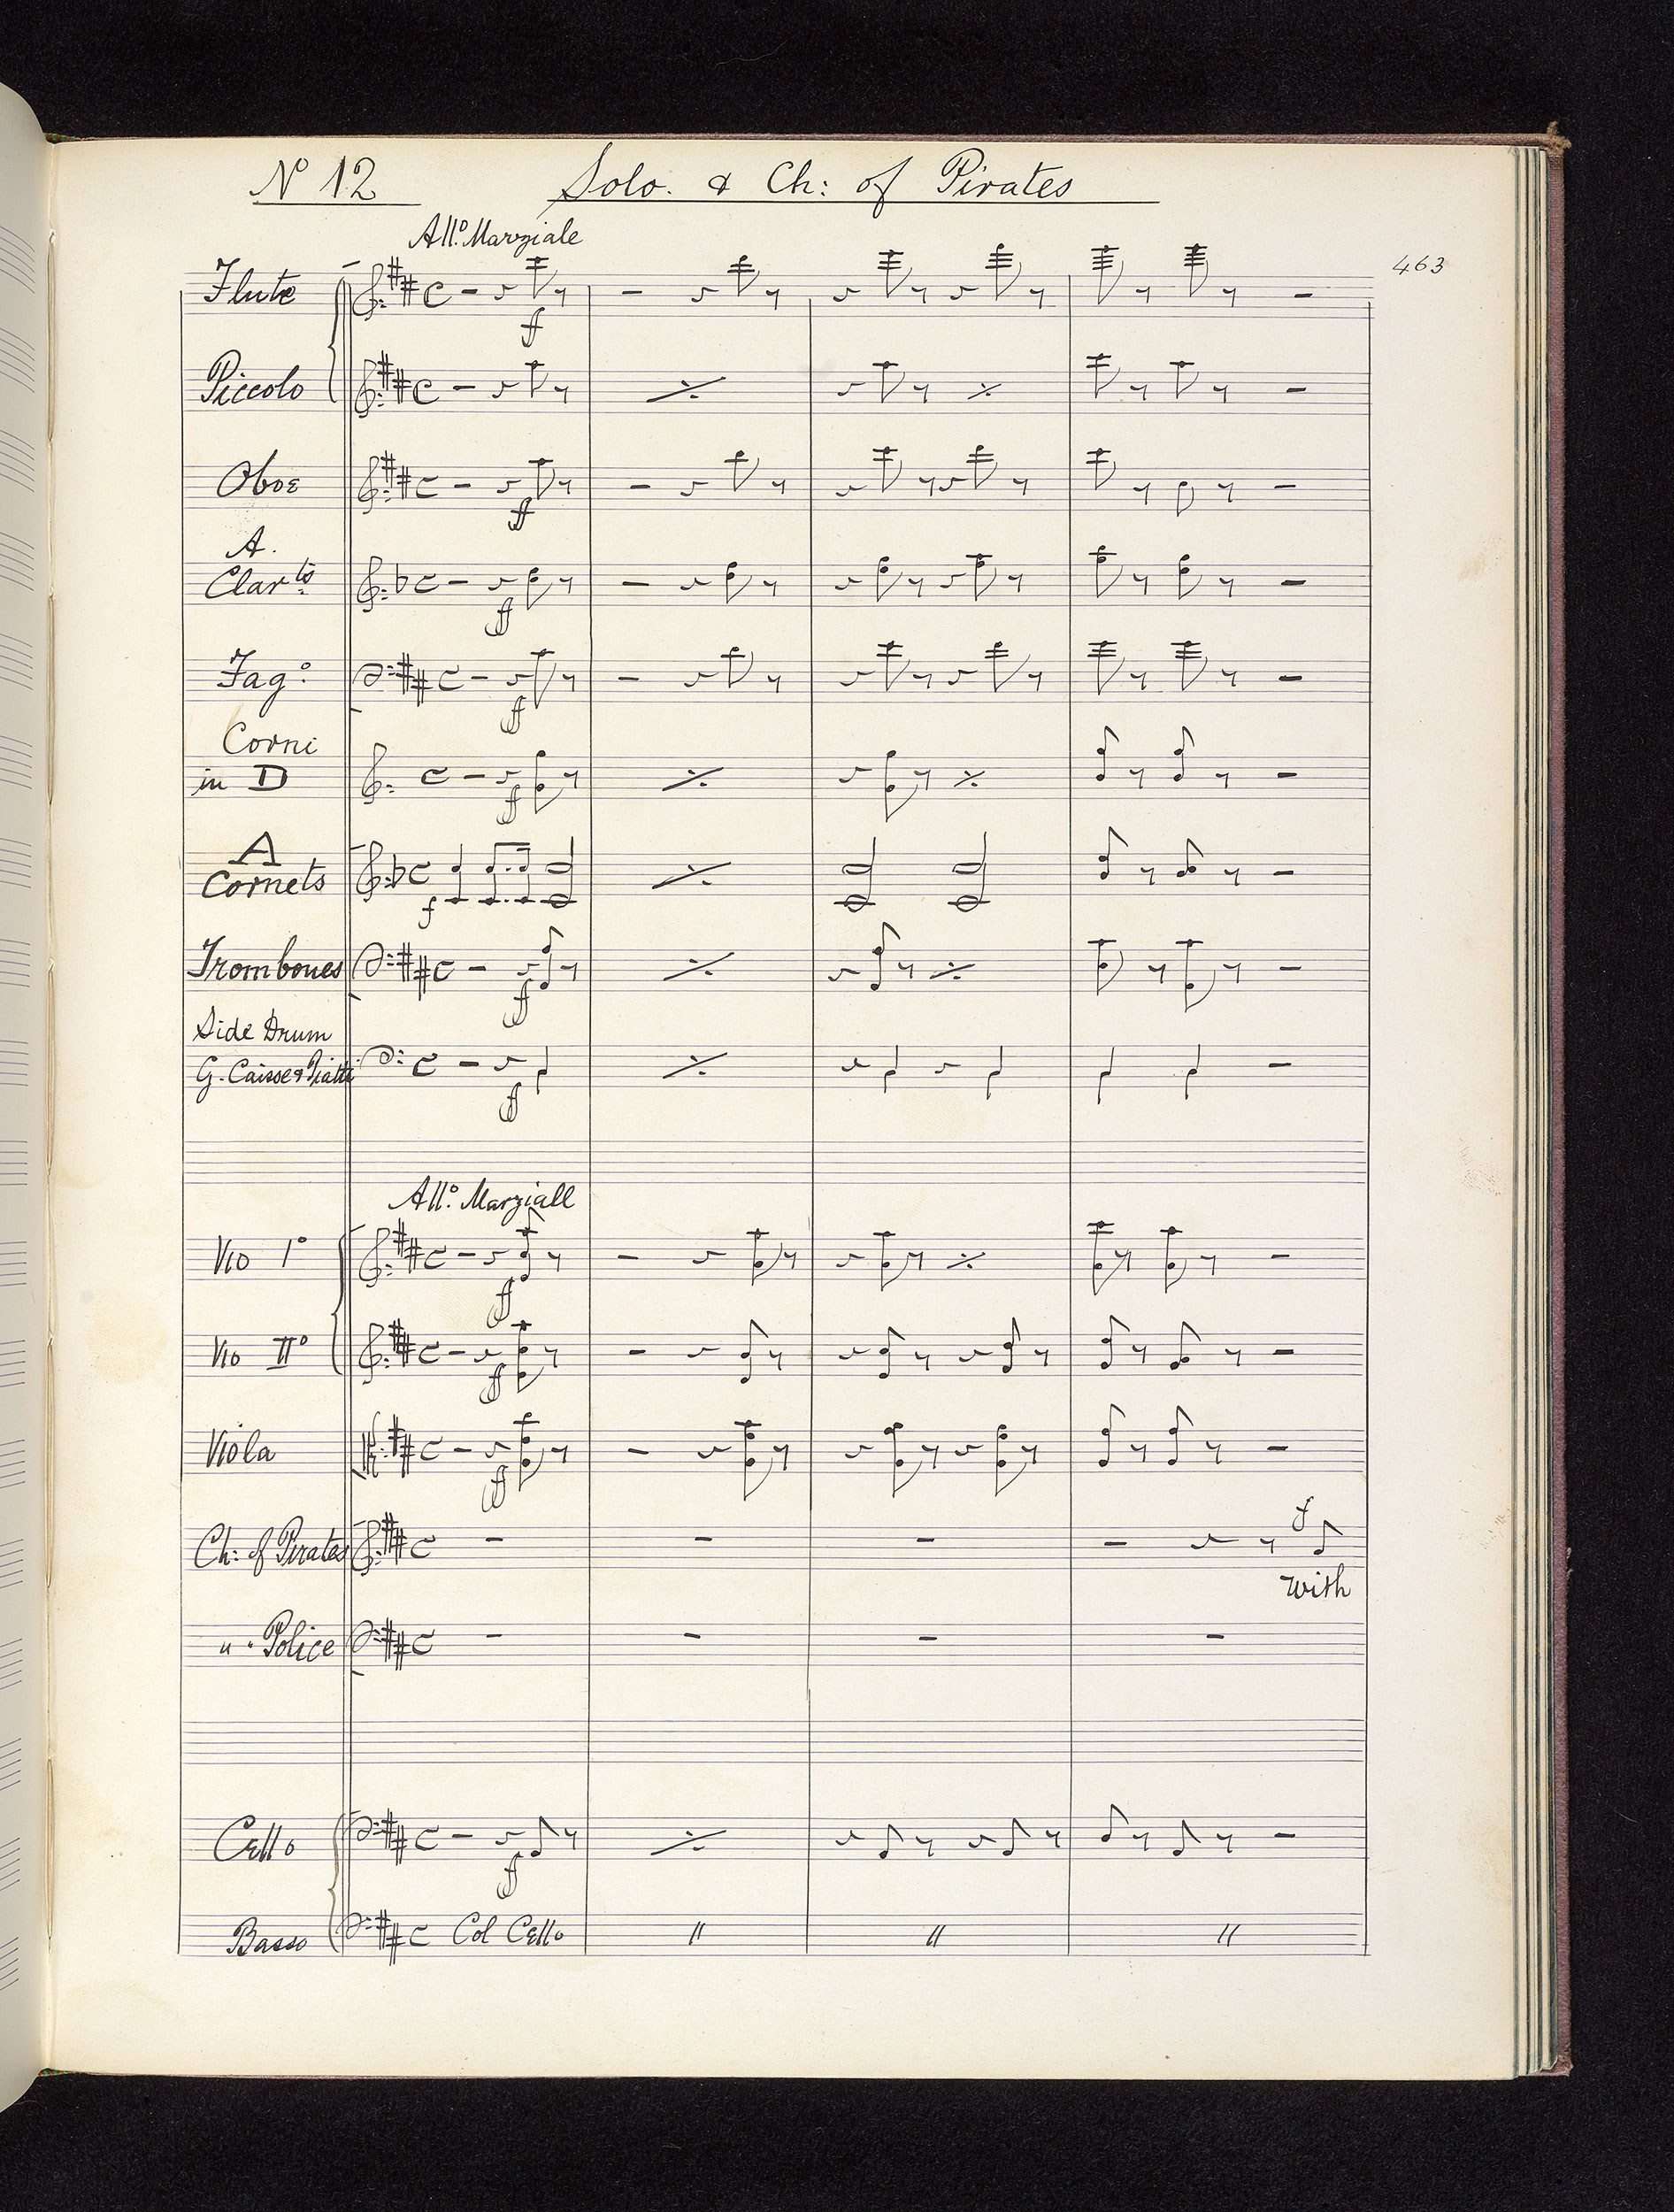 No 12 Solo. & Ch: of Pirates
Allo. Marziale
463
Flute
f
Piccolo
Oboe
ff
A.
Clarts
ff
Fago
ff
Corni
in D
ff
A
Cornets
f
Trombones
ff
Side Drum
G. Caisse & Piatti
ff
Allo. Marziall
Vio Io
ff
Vio IIo
ff
Viola
ff
Ch: of Pirates
f
With
" " Police
Cello
ff
Basso Col Cello